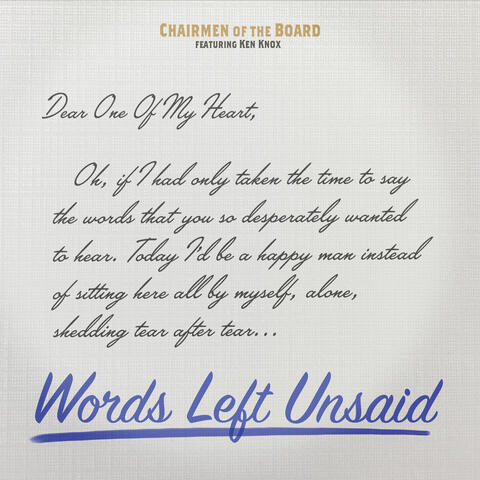 CHAIRMEN OF THE BOARD
FEATURING KEN KNOX
Dear One Of My Heart,
Oh, if I had only taken the time to say
the words that you so desperately wanted
to hear. Today I'd be a happy man instead
of sitting here all by myself, alone,
shedding tear after tear...
Words Left Unsaid